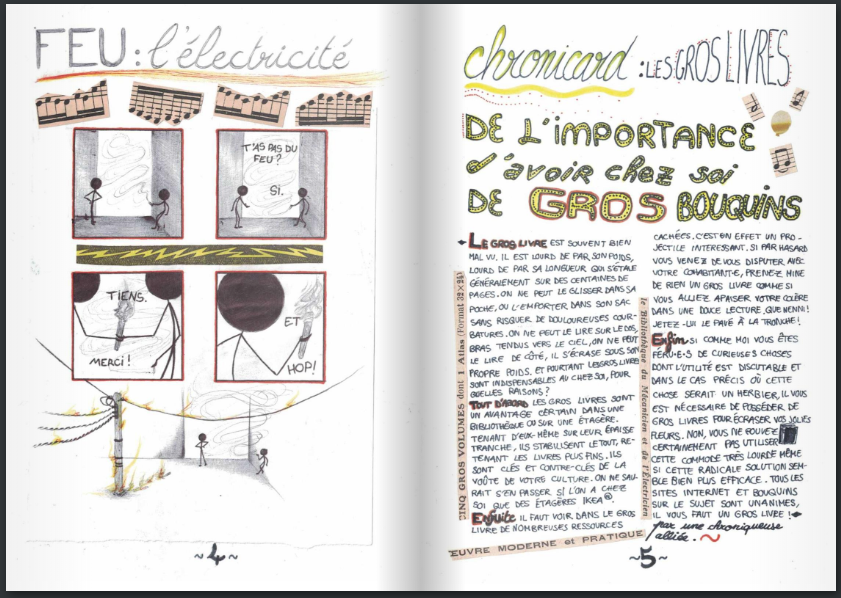 FEU : l'électricité
T'AS PAS DU
FEU ?
SI.
TIENS.
MERCI !
ET
HOP!
~4~
chronicard : LES GROS LIVRES
DE L'IMPORTANCE
d'avoir chez soi
DE GROS BOUQUINS
LE GROS LIVRE EST SOUVENT BIEN
MAL VU. IL EST LOURD DE PAR SON POIDS,
LOURD DE PAR SA LONGUEUR QUI S'ÉTALE
GÉNÉRALEMENT SUR DES CENTAINES DE
PAGES. ON NE PEUT LE GLISSER DANS SA
POCHE, OU L'EMPORTER DANS SON SAC
SANS RISQUER DE DOULOUREUSES COUR-
BATURES. ON NE PEUT LE LIRE SUR LE DOS,
BRAS TENDUS VERS LE CIEL, ON NE PEUT
LE LIRE DE CÔTÉ, IL S'ÉCRASE SOUS SON
PROPRE POIDS. ET POURTANT LES GROS LIVRES
SONT INDISPENSABLES AU CHEZ SOI, POUR
QUELLES RAISONS ?
TOUT D'ABORD LES GROS LIVRES SONT
UN AVANTAGE CERTAIN DANS UNE
BIBLIOTHÈQUE OU SUR UNE ÉTAGÈRE.
TENANT D'EUX-MÊME SUR LEUR ÉPAISSE
TRANCHE, ILS STABILISENT LE TOUT, RE-
TENANT LES LIVRES PLUS FINS. ILS
SONT CLÉS ET CONTRE-CLÉS DE LA
VOÛTE DE VOTRE CULTURE. ON NE SAU-
RAIT S'EN PASSER SI L'ON A CHEZ
SOI QUE DES ÉTAGÈRES IKEA®.
Ensuite IL FAUT VOIR DANS LE GROS
LIVRE DE NOMBREUSES RESSOURCES
CACHÉES. C'EST EN EFFET UN PRO-
JECTILE INTERESSANT. SI PAR HASARD
VOUS VENEZ DE VOUS DISPUTER AVEC
VOTRE COHABITANT·E, PRENEZ MINE
DE RIEN UN GROS LIVRE COMME SI
VOUS ALLIEZ APAISER VOTRE COLÈRE
DANS UNE DOUCE LECTURE, QUE NENNI !
JETEZ-LUI LE PAVÉ À LA TRONCHE !
Enfin SI COMME MOI VOUS ÊTES
FERU·E·S DE CURIEUSES CHOSES
DONT L'UTILITÉ EST DISCUTABLE ET
DANS LE CAS PRÉCIS OÙ CETTE
CHOSE SERAIT UN HERBIER, IL VOUS
EST NÉCESSAIRE DE POSSÉDER DE
GROS LIVRES POUR ÉCRASER VOS JOLIES
FLEURS. NON, VOUS NE POUVEZ
CERTAINEMENT PAS UTILISER
CETTE COMMODE TRÈS LOURDE MÊME
SI CETTE RADICALE SOLUTION SEM-
BLE BIEN PLUS EFFICACE. TOUS LES
SITES INTERNET ET BOUQUINS
SUR LE SUJET SONT UNANIMES,
IL VOUS FAUT UN GROS LIVRE !
par une chroniqueuse
alliée.
CINQ GROS VOLUMES dont 1 Atlas (Format 32×24)
la Bibliothèque du Mécanicien et de l'Électricien
ŒUVRE MODERNE et PRATIQUE
~5~